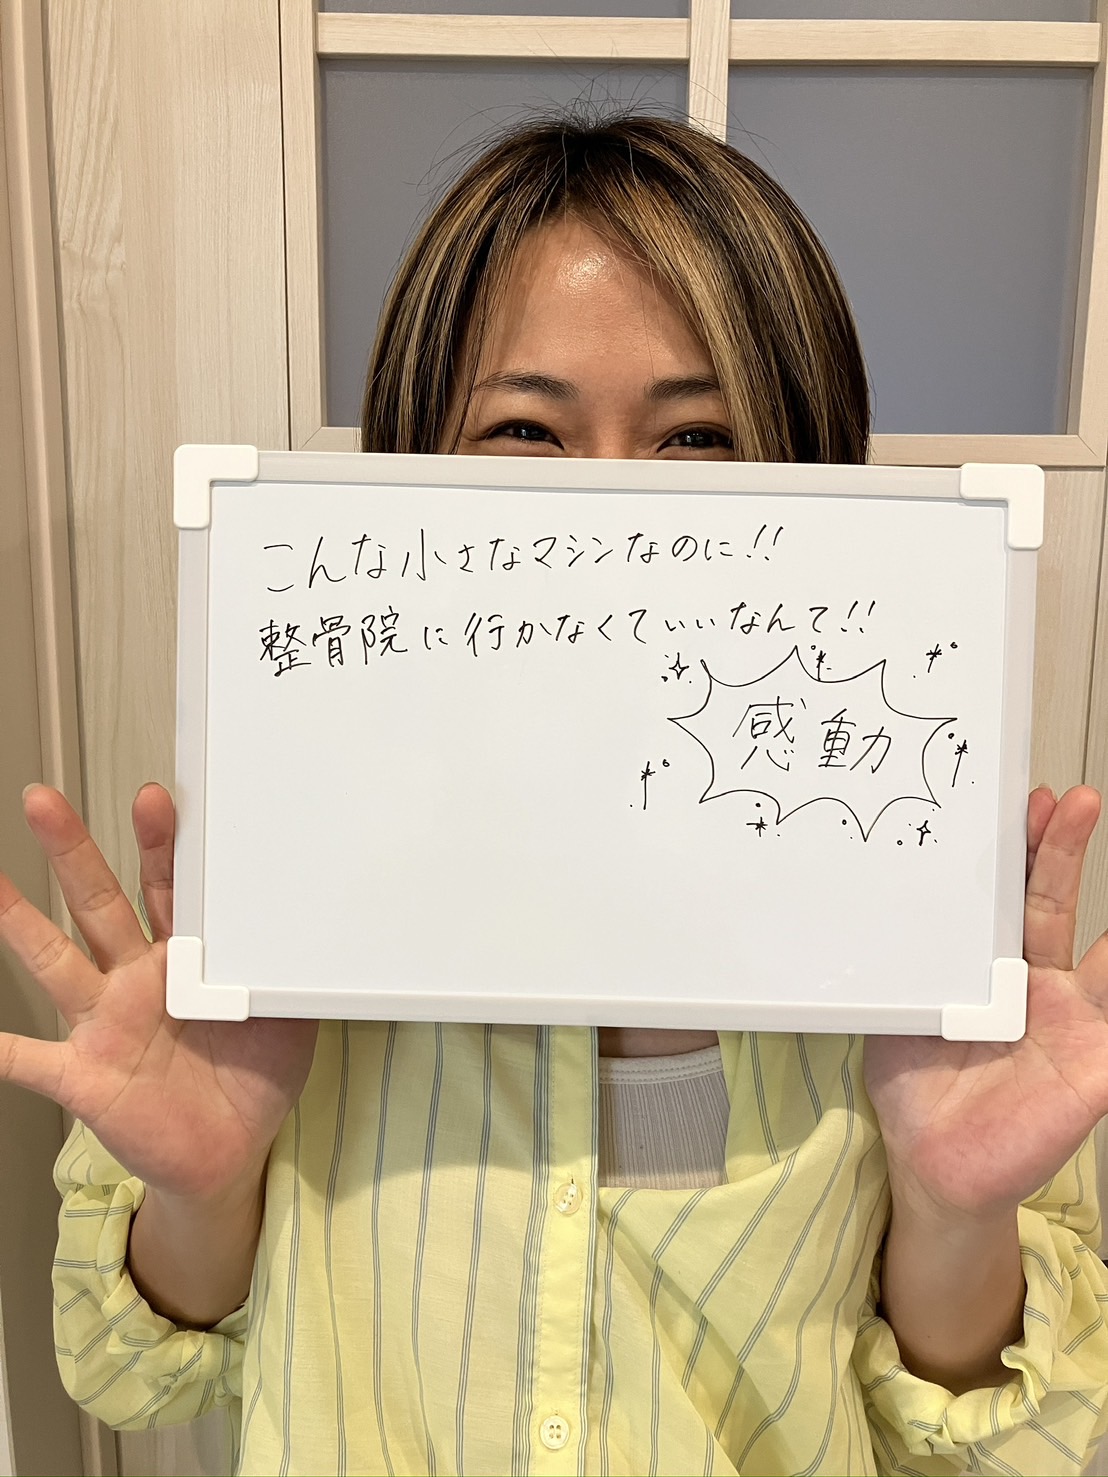 こんな小さなマシンなのに!!
整骨院に行かなくてぃぃなんて!!
感動